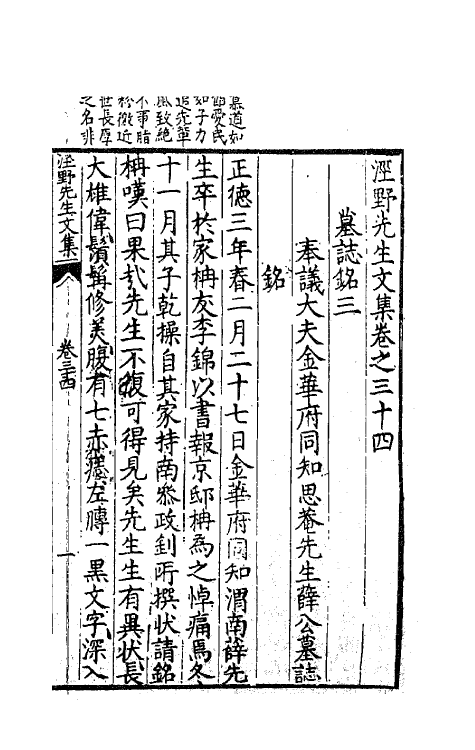 涇野先生文集卷之三十四
墓誌銘三
奉議大夫金華府同知思菴先生薛公墓誌
銘
正德三年春二月二十七日金華府同知渭南薛先
生卒於家柟友李錦以書報京邸柟爲之悼痛焉冬
十一月其子乾操自其家持南叅政釗所撰狀請銘
柟嘆曰果矣先生不復可得見矣先生生有異狀長
大雄偉鬚髯修美腹有七赤痣左膊一黑文字深入
涇野先生文集
卷三十四
一
慕道如
愛民
如子力
追先軰
風致絶
不事脂
於僚近
世長厚
之名非